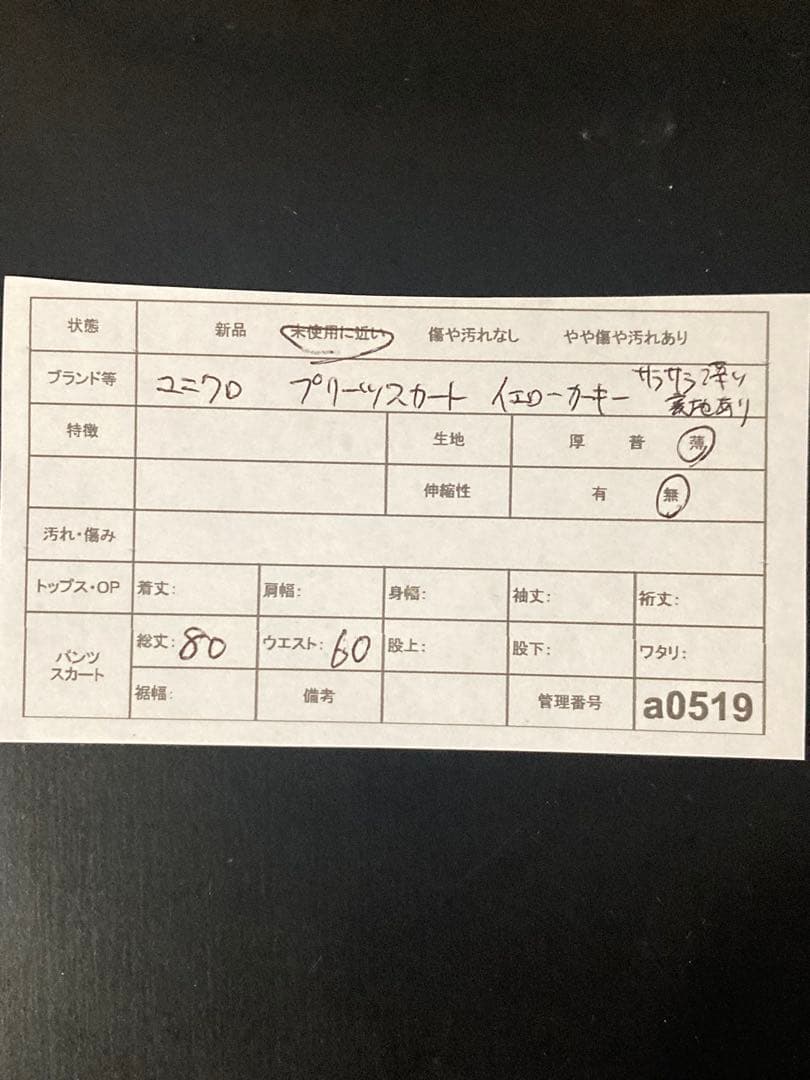 状態 新品 未使用に近い 傷や汚れなし やや傷や汚れあり
ブランド等 ユニクロ プリーツスカート イエローカーキー サラサラ薄い
裏地あり
特徴 生地 厚 普 薄
伸縮性 有 無
汚れ・傷み
トップス・OP 着丈: 肩幅: 身幅: 袖丈: 裄丈:
パンツ
スカート
総丈: 80 ウエスト: 60 股上: 股下: ワタリ:
裾幅: 備考 管理番号 a0519